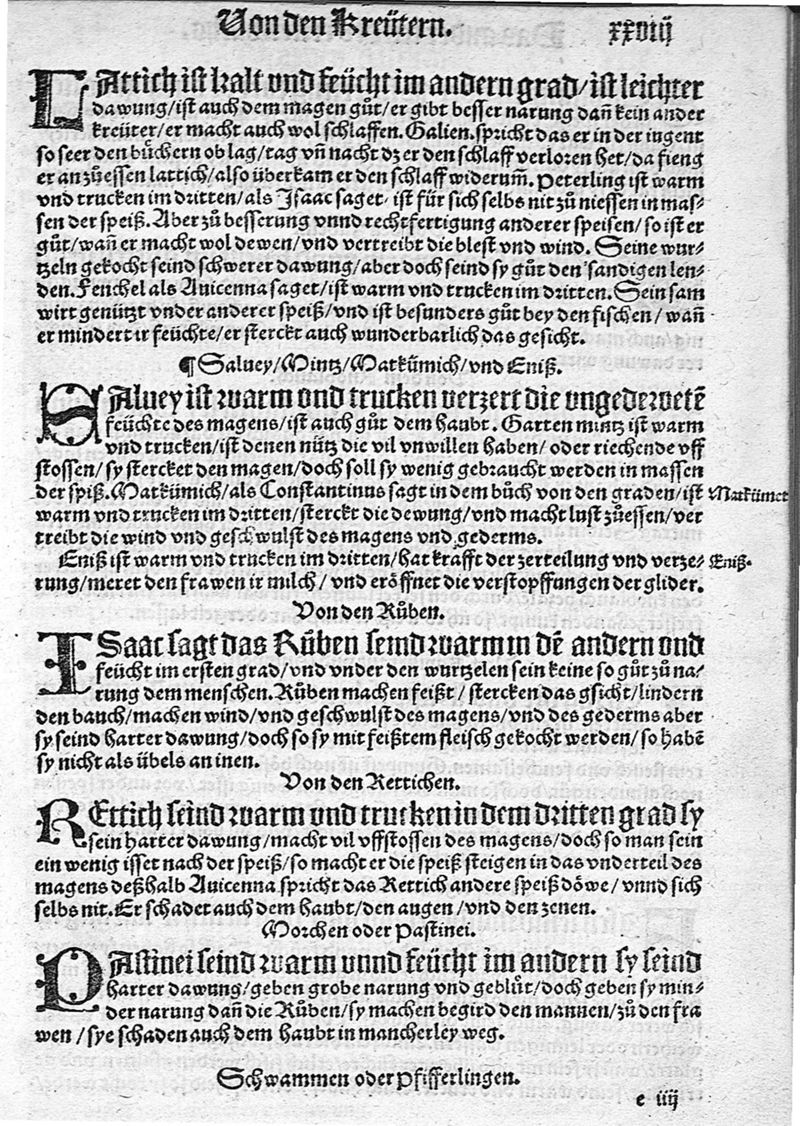 Von den Kreütern. xxviij
LAttich ist kalt vnd feücht im andern grad/ist leichter
dawung/ist auch dem magen gůt/er gibt besser narung dañ kein ander
kreüter/er macht auch wol schlaffen. Galien. spricht das er in der iugent
so seer den bůchern ob lag/tag vñ nacht dz er den schlaff verloren het/da fieng
er an zůessen lattich/also überkam er den schlaff widerum̃. Peterling ist warm
vnd trucken im dritten/als Isaac saget/ ist für sich selbs nit zů niessen in mas-
sen der speiß. Aber zů besserung vnnd rechtfertigung anderer speisen/so ist er
gůt/wañ er macht wol dewen/vnd vertreibt die blest vnd wind. Seine wur-
tzeln gekocht seind schwerer dawung/aber doch seind sy gůt den sandigen len-
den. Fenchel als Auicenna saget/ist warm vnd trucken im dritten. Sein sam
wirt genützt vnder anderer speiß/vnd ist besunders gůt bey den fischen/wañ
er mindert ir feüchte/er sterckt auch wunderbarlich das gesicht.
¶ Saluey/Mintz/Matkümich/vnd Eniß.
SAluey ist warm vnd trucken verzert die vngedewetẽ
feüchte des magens/ist auch gůt dem haubt. Garten mintz ist warm
vnd trucken/ist denen nütz die vil vnwillen haben/oder riechende vff
stossen/sy stercket den magen/doch soll sy wenig gebraucht werden in massen
der spiß. Matkümich/als Constantinus sagt in dem bůch von den graden/ist Matkümet
warm vnd trucken im dritten/sterckt die dewung/vnd macht lust zůessen/ver
treibt die wind vnd geschwulst des magens vnd gederms.
Eniß ist warm vnd trucken im dritten/hat krafft der zerteilung vnd verze- Eniß.
rung/meret den frawen ir milch/ vnd eröffnet die verstopffungen der glider.
Von den Růben.
ISaac sagt das Růben seind warm in dẽ andern vnd
feücht im ersten grad/vnd vnder den wurtzelen sein keine so gůt zů na-
rung dem menschen. Růben machen feißt/ stercken das gsicht/lindern
den bauch/machen wind/vnd geschwulst des magens/vnd des gederms aber
sy seind harter dawung/doch so sy mit feißtem fleisch gekocht werden/so habẽ
sy nicht als übels an inen.
Von den Rettichen.
REttich seind warm vnd trucken in dem dritten grad sy
sein harter dawung/macht vil vffstossen des magens/doch so man sein
ein wenig isset nach der speiß/so macht er die speiß steigen in das vnderteil des
magens deßhalb Auicenna spricht das Rettich andere speiß döwe/vnnd sich
selbs nit. Er schadet auch dem haubt/den augen/vnd den zenen.
Morchen oder Pastinei.
PAstinei seind warm vnnd feücht im andern sy seind
harter dawung/geben grobe narung vnd geblůt/doch geben sy min-
der narung dañ die Růben/sy machen begird den mannen/zů den fra
wen/sye schaden auch dem haubt in mancherley weg.
Schwammen oder Pfifferlingen.
e iiij